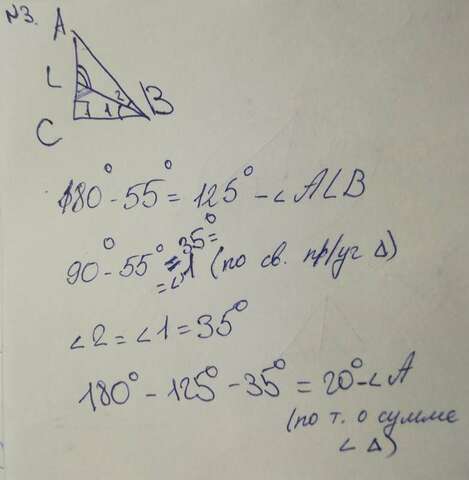 №3.
A
L
2
B
1
C
180° - 55° = 125° - ∠ALB
90° - 55° = 35° =
= ∠1 (по св. пр/уг Δ)
∠2 = ∠1 = 35°
180° - 125° - 35° = 20° - ∠A
(по т. о сумме
∠ Δ)